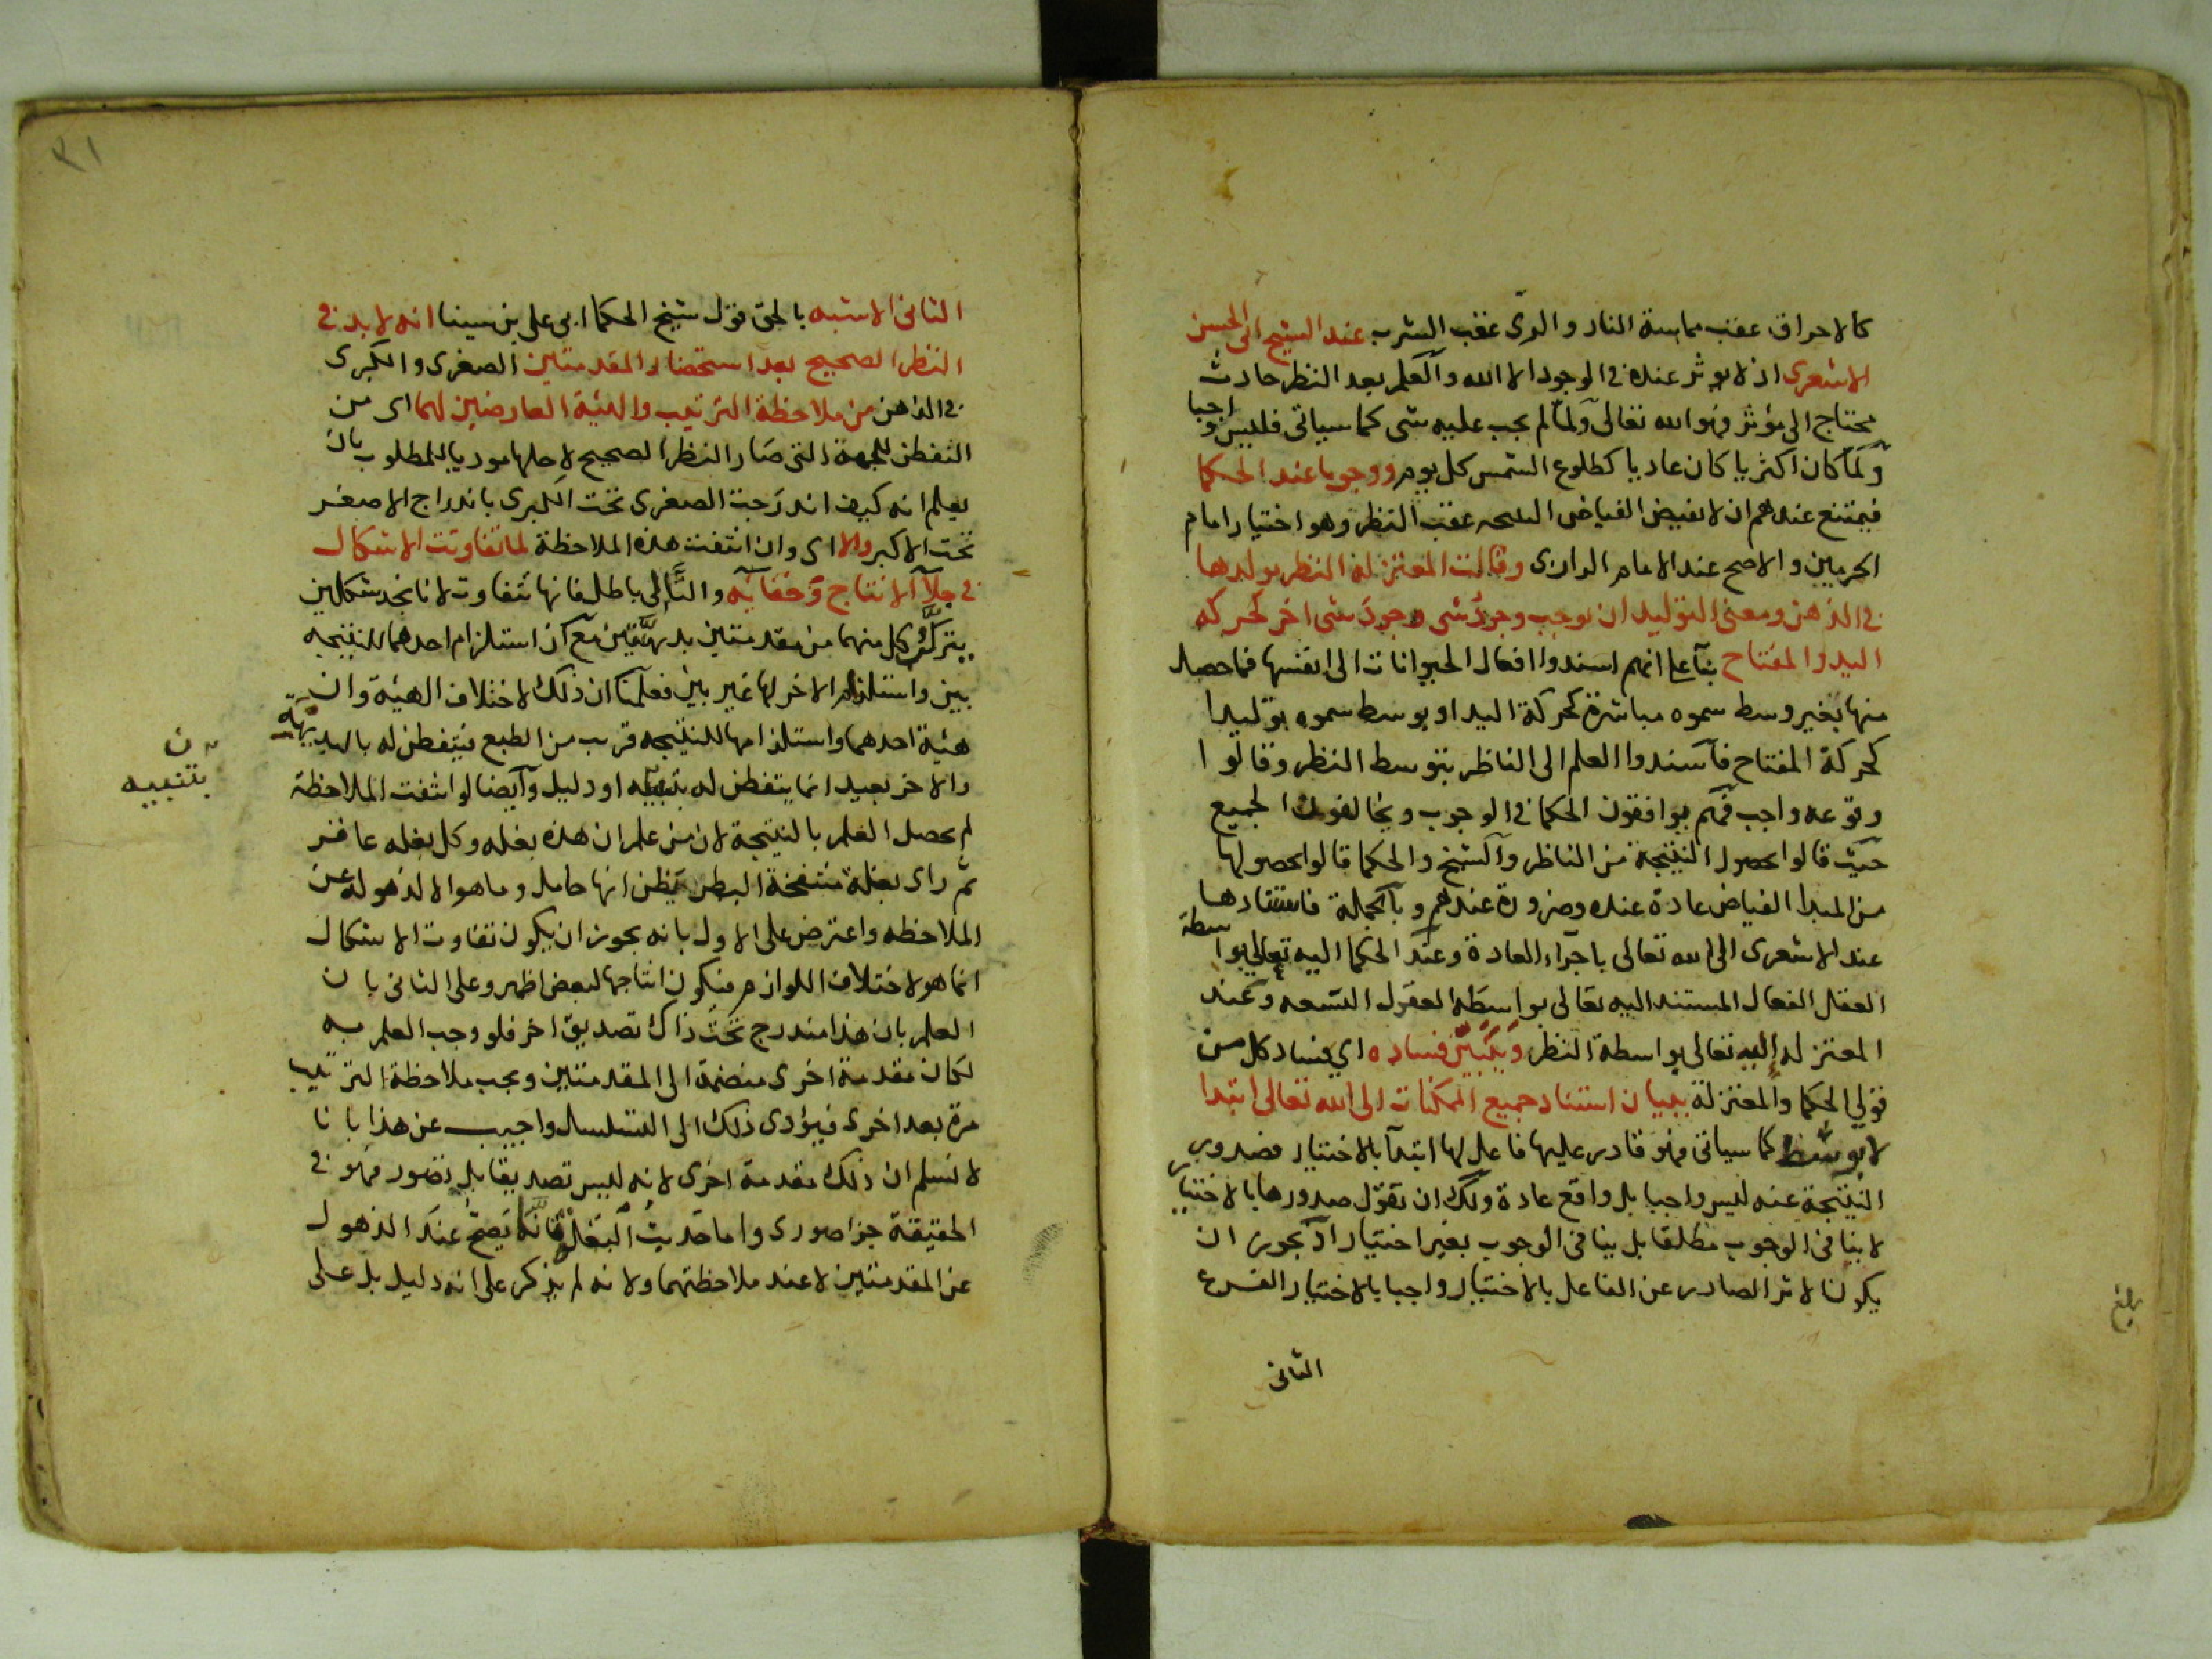 كالاحراق عقب مماسة النار والرى عقب الشرب عند الشيخ ابى الحسن
الاشعرى اذ لا يوثر عنده فى الوجود الا الله والعلم بعد النظر حادث
محتاج الى مؤثر وهو الله تعالى ولما لم يجب عليه شى كما سياتى فليس واجبا
ولما كان اكثريا كان عاديا كطلوع الشمس كل يوم ووجوبا عند الحكما
فيمتنع عندهم ان لا يفيض الفياض النتيجه عقب النظر وهو اختيار امام
الحرمين والاصح عند الامام الرازى وقالت المعتزلة النظر يولدها
فى الذهن ومعنى التوليد ان يوجب وجود شى وجود شى اخر كحركه
اليد والمفتاح بنآ على انهم اسندوا افعال الحيوانات الى انفسها فما حصل
منها بغير وسط سموه مباشرة كحركة اليد او بوسط سموه توليدا
كحركة المفتاح فاسندوا العلم الى الناظر بتوسط النظر وقالوا
وقوعه واجب فهم يوافقون الحكما فى الوجوب ويخالفون الجميع
حيث قالوا بحصول النتيجة من الناظر والشيخ والحكما قالوا بحصولها
من المبدا الفياض عادة عنده وضرورة عندهم وبالجملة فاستنادها
عند الاشعرى الى الله تعالى باجرآء العادة وعند الحكما اليه تعالى بواسطة
العقل الفعال المستند اليه تعالى بواسطه العقول التسعه وعند
المعتزله اليه تعالى بواسطة النظر ويتبين فساده اي فساد كل من
قولي الحكما والمعتزلة ببيان استناد جميع الممكنات الى الله تعالى ابتدا
لا بوسط كما سياتى وهو قادر عليها فاعل لها ابتدآ بالاختيار فصدور
النتيجة عنه ليس واجبا بل واقع عادة ولك ان تقول صدورها بالاختيار
لا ينافى الوجوب مطلقا بل ينافى الوجوب بغير اختيار اذ يجوز ان
يكون الاثر الصادر عن الفاعل بالاختيار واجبا بالاختيار الفرع
الثانى
بلغ
٣١
الثانى الاشبه بالحق قول شيخ الحكما ابى على بن سينا انه لا بد فى
النظر الصحيح بعد استحضار المقدمتين الصغرى والكبرى
فى الذهن من ملاحظة الترتيب والهيئة العارضين لهما اى من
التفطن للجهة التى صار النظر الصحيح لاجلها موديا للمطلوب بان
يعلم انه كيف اندرجت الصغرى تحت الكبرى باندراج الاصغر
تحت الاكبر والا اى وان انتفت هذه الملاحظة لما تفاوتت الاشكال
فى جلآ الانتاج وخفائه والتالى باطل فانها تتفاوت لانا نجد شكلين
يتركب كل منهما من مقدمتين بديهيتين مع ان استلزام احدهما للنتيجه
بين واستلزام الاخر لها غير بين فعلمنا ان ذلك لاختلاف الهيئة وان
هيئة احدهما واستلزامها للنتيجه قريب من الطبع فيتفطن له بالبديهة
والاخر بعيد انما يتفطن له بتنبيه او دليل وايضا لو انتفت الملاحظة
ن
بتنبيه
لم يحصل العلم بالنتيجة لان من علم ان هذه بغله وكل بغله عاقر
ثم راى بغلة منتفخة البطن يظن انها حامل وما هو الا لذهوله عن
الملاحظه واعترض على الاول بانه يجوز ان يكون تفاوت الاشكال
انما هو لاختلاف اللوازم فيكون انتاجها لبعض اظهر وعلى الثانى بان
العلم بان هذا مندرج تحت ذاك تصديق اخر فلو وجب العلم به
لكان مقدمة اخرى منضمة الى المقدمتين ويجب ملاحظة الترتيب
مرة بعد اخرى فيؤدى ذلك الى التسلسل واجيب عن هذا بانا
لا نسلم ان ذلك مقدمة اخرى لانه ليس تصديقا بل تصور فهو فى
الحقيقة جزا صورى واما حديث البغلة فانما يصح عند الذهول
عن المقدمتين لا عند ملاحظتهما ولانه لم يذكر على انه دليل بل على